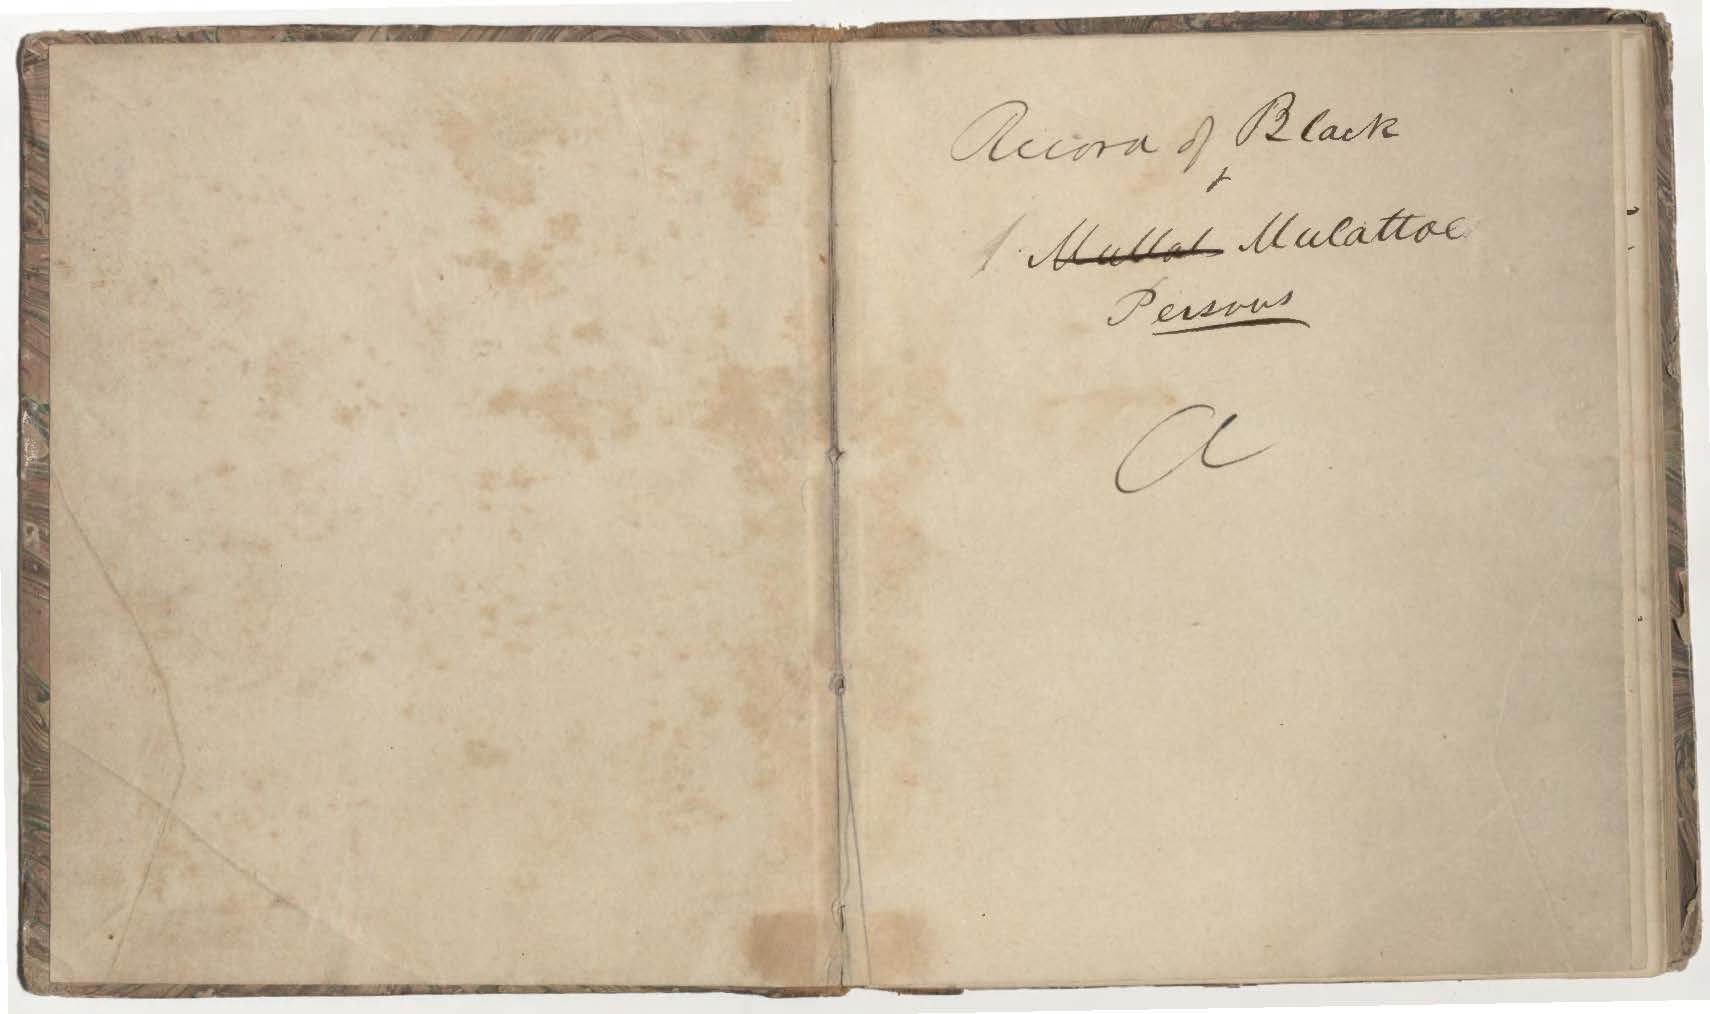 Record of Black
&
Mullat Mulattoe
Persons
A